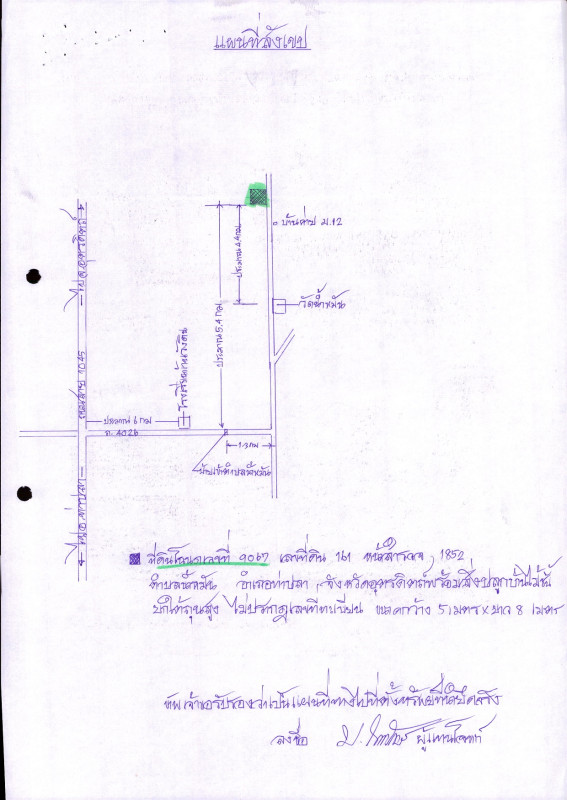 แผนที่สังเขป
ไป อ.อุตรดิตถ์
ถนนสาย 1045
ไป อ.ท่าปลา
บ้านต่าย ม.12
ประมาณ 4.4 กม
วัดน้ำหมัน
ประมาณ 5.4 กม
โรงเรียนบ้านวังดิน
ประมาณ 6 กม
ถ. 4026
1.3 กม
ป้ายเข้าตำบลน้ำหมัน
ที่ดินโฉนดเลขที่ 9067 เลขที่ดิน 161 หน้าสำรวจ 1852
ตำบลน้ำหมัน อำเภอท่าปลา จังหวัดอุตรดิตถ์ พร้อมสิ่งปลูกบ้านไม้ชั้น
ยกใต้ถุนสูง ไม่ปรากฏเลขที่ทะเบียน ขนาดกว้าง 5 เมตร x ยาว 8 เมตร
ข้าพเจ้าขอรับรองว่าเป็นแผนที่ทางไปที่ตั้งทรัพย์ที่จะยึดจริง
ลงชื่อ ผู้แทนโจทก์